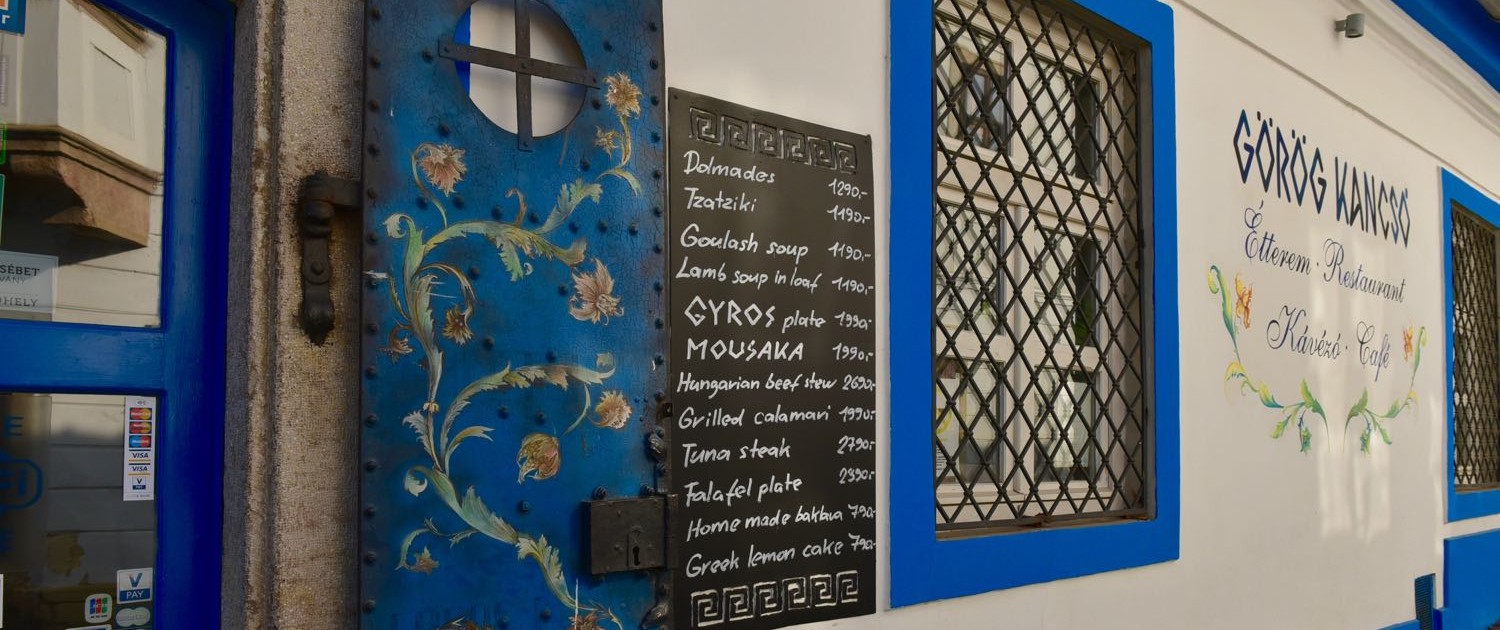 SÉBET
VÁNY
ŐHELY
VISA
VISA
V PAY
V PAY
JCB
Dolmades 1290,-
Tzatziki 1190,-
Goulash soup 1190,-
Lamb soup in loaf 1190,-
GYROS plate 1990,-
MOUSAKA 1990,-
Hungarian beef stew 2690,-
Grilled calamari 1990,-
Tuna steak 2790,-
Falafel plate
Home made baklava 790,-
Greek lemon cake 790,-
GÖRÖG KANCSÓ
Étterem · Restaurant
Kávézó · Café